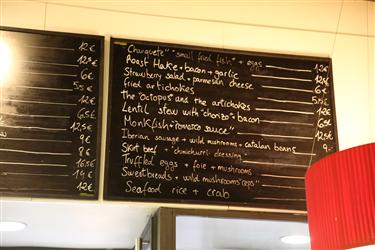 12€
12€
6€
5,5€
12€
6,5€
12,5€
9€
9€
16,5€
14€
12€
"Chanquete" "small fried fish" + eggs 13€
Roast Hake + bacon + garlic 12€
Strawberry salad + parmesan cheese 6€
Fried artichokes
The "Octopus" and the artichokes
Lentil stew with "chorizo" + bacon 6€
Monkfish "romero sauce"
Iberian sausage + wild mushrooms + catalan beans
Skirt beef + "chimichurri dressing"
Truffled eggs + foie + mushrooms
Sweetbreads + wild mushrooms "ceps"
Seafood rice + crab